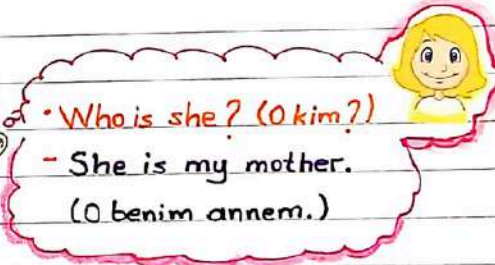 • Who is she? (O kim?)
- She is my mother.
(O benim annem.)